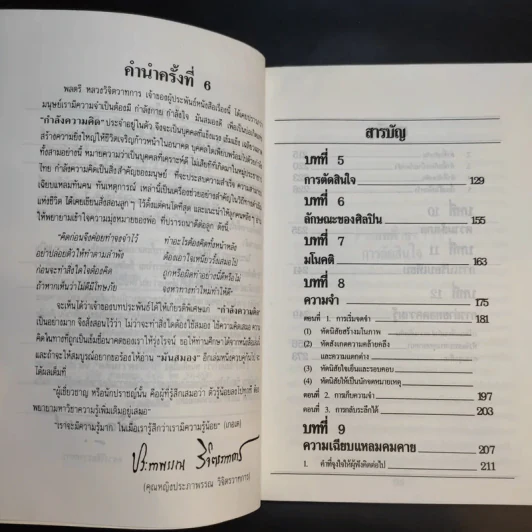 คำนำครั้งที่ 6
พลตรี หลวงวิจิตวาทการ เจ้าของผู้ประพันธ์หนังสือเรื่องนี้
มนุษย์เรามีความจำเป็นต้องมี กำลังกาย กำลังใจ มันสมองดี
"กำลังความคิด" ประจำอยู่ในตัว จึงจะเป็นบุคคลที่แข็งแรง
สร้างความยิ่งใหญ่ให้ชีวิตเจริญก้าวหน้าในอนาคต
ทั้งสามอย่างนี้ หมายความว่าเป็นบุคคลที่เคราะห์ดี
ไทย กำลังความคิดเป็นสิ่งสำคัญของมนุษย์ ที่จะประสบความสำเร็จ
เฉียบแหลมทันคน ทันเหตุการณ์ เหล่านี้เป็นเครื่องช่วยอย่างสำคัญ
แห่งชีวิต ได้เคยเขียนสั่งสอนลูก ๆ ไว้ตั้งแต่คนโตที่สุด
ให้พยายามเข้าใจความมุ่งหมายของพ่อ ที่ปรารถนาดีต่อลูก ดังนี้
"คิดก่อนจึงค่อยทำจงจำไว้ ทำอะไรต้องคิดทั้งหน้าหลัง
อย่าปล่อยตัวให้ทำตามลำพัง ต้องเอาใจเหนี่ยวรั้งเสมอไป
ก่อนจะทำสิ่งใดใจต้องคิด ถูกหรือผิดทำอย่างนี้ดีหรือไม่
ถ้าหากเห็นว่าไม่ดีมีโทษภัย จงหาทางทำใหม่ทำให้ดี"
จะเห็นได้ว่าเจ้าของบทประพันธ์ได้ให้เกียรติพิเศษแก่ "กำลังความคิด"
เป็นอย่างมาก จึงสั่งสอนไว้ว่า ไม่ว่าจะทำสิ่งใดต้องใช้สมอง ใช้ความคิดเสมอ
คิดในทางที่ถูกเป็นเข็มชี้อนาคตของเราให้รุ่งโรจน์
และถ้าจะให้สมบูรณ์อยากขอร้องให้อ่าน "มันสมอง"
ได้ผลเต็มที่
"ผู้เชี่ยวชาญ หรือนักปราชญ์นั้น คือผู้ที่รู้สึกเสมอว่า
พยายามหาวิชาความรู้เพิ่มเติมอยู่เสมอ"
"เราจะมีความรู้มาก ในเมื่อเรารู้สึกว่าเรามีความรู้น้อย" (เกอเต)
ประภาพรรณ วิจิตรวาทการ
(คุณหญิงประภาพรรณ วิจิตรวาทการ)
สารบัญ
บทที่ 5
การตัดสินใจ 129
บทที่ 6
ลักษณะของศิลปิน 155
บทที่ 7
มโนคติ 163
บทที่ 8
ความจำ 175
ตอนที่ 1. การเริ่มจดจำ 181
(1) หัดนิสัยสร้างมโนภาพ
(2) หัดสังเกตความคล้ายคลึง
และความแตกต่าง
(3) หัดนิสัยใจเย็นและรอบคอบ
(4) หัดนิสัยให้เป็นนักจดหมายเหตุ
ตอนที่ 2. การเก็บความจำ 197
ตอนที่ 3. การกลับระลึกได้ 203
บทที่ 9
ความเฉียบแหลมคมคาย 207
1. คำที่จูงใจให้ผู้ฟังคิดต่อไป 211